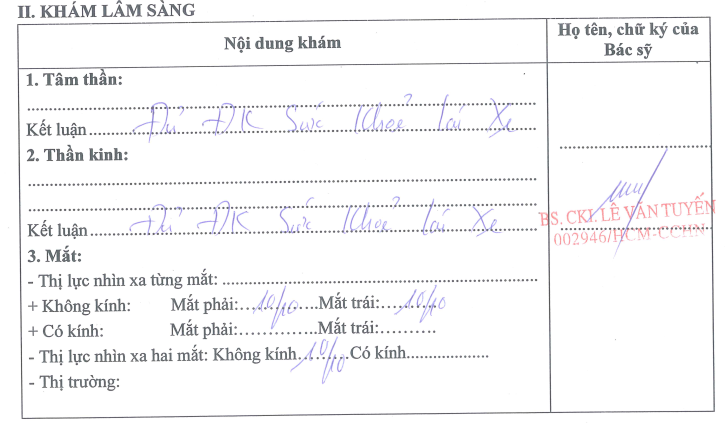 II. KHÁM LÂM SÀNG
Nội dung khám
Họ tên, chữ ký của
Bác sỹ
1. Tâm thần:
Kết luận Đủ ĐK Sức Khoẻ lái Xe
2. Thần kinh:
Kết luận Đủ ĐK Sức Khoẻ lái Xe
BS. CKI. LÊ VĂN TUYẾN
002946/HCM-CCHN
3. Mắt:
- Thị lực nhìn xa từng mắt:
+ Không kính: Mắt phải: 10/10 Mắt trái: 10/10
+ Có kính: Mắt phải: Mắt trái:
- Thị lực nhìn xa hai mắt: Không kính 10/10 Có kính
- Thị trường: